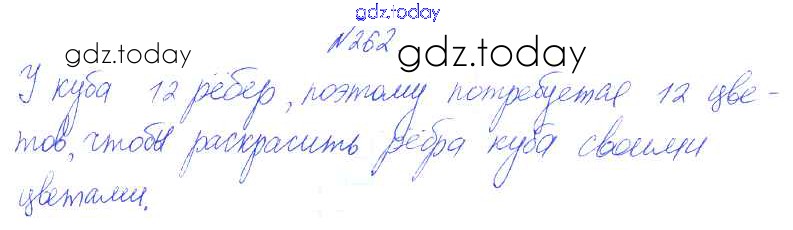 gdz.today
№262
gdz.today gdz.today
У куба 12 рёбер, поэтому потребуется 12 цве-
тов, чтобы раскрасить рёбра куба своими
цветами.